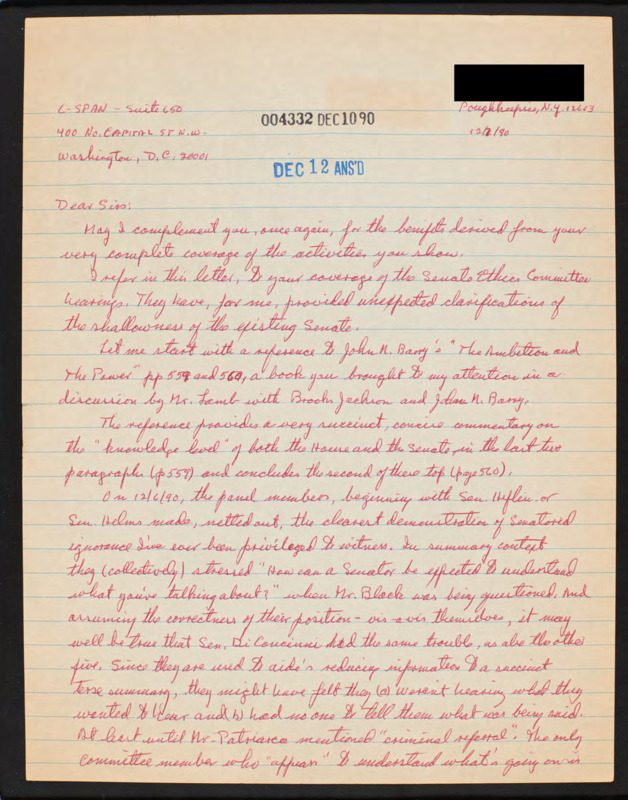 C-SPAN - Suite 650
400 No. CAPITAL ST N.W.
Washington, D.C. 20001
004332 DEC 10 90
Poughkeepsie, N.Y. 12603
12/7/90
DEC 12 ANS'D
Dear Sirs:
May I complement you, once again, for the benefits derived from your
very complete coverage of the activities you show.
I refer in this letter, to your coverage of the Senate Ethics Committee
hearings. They have, for me, provided unexpected clarifications of
the shallowness of the existing Senate.
Let me start with a reference to John M. Barry's "The Ambition and
The Power" pp 559 and 560, a book you brought to my attention in a
discussion by Mr. Lamb with Brooks Jackson and John M. Barry.
The reference provides a very succinct, concise commentary on
the "knowledge level" of both the House and the Senate, in the last two
paragraphs (p559) and concludes the second of these top (page 560).
On 12/6/90, the panel members, beginning with Sen. Heflin or
Sen. Helms made, netted out, the clearest demonstration of Senatored
ignorance I've ever been privileged to witness. In summary context
they (collectively) stressed "How can a Senator be expected to understand
what you're talking about?" when Mr. Black was being questioned. And
assuming the correctness of their position - vis a vis themselves, it may
well be true that Sen. Di Concinni had the same trouble, as also the other
five. Since they are used to aide's reducing information to a succinct
terse summary, they might have felt they (a) weren't hearing what they
wanted to hear and (b) had no one to tell them what was being said.
At least until Mr. Patriarca mentioned "criminal referral". The only
committee member who "appears" to understand what's going on is